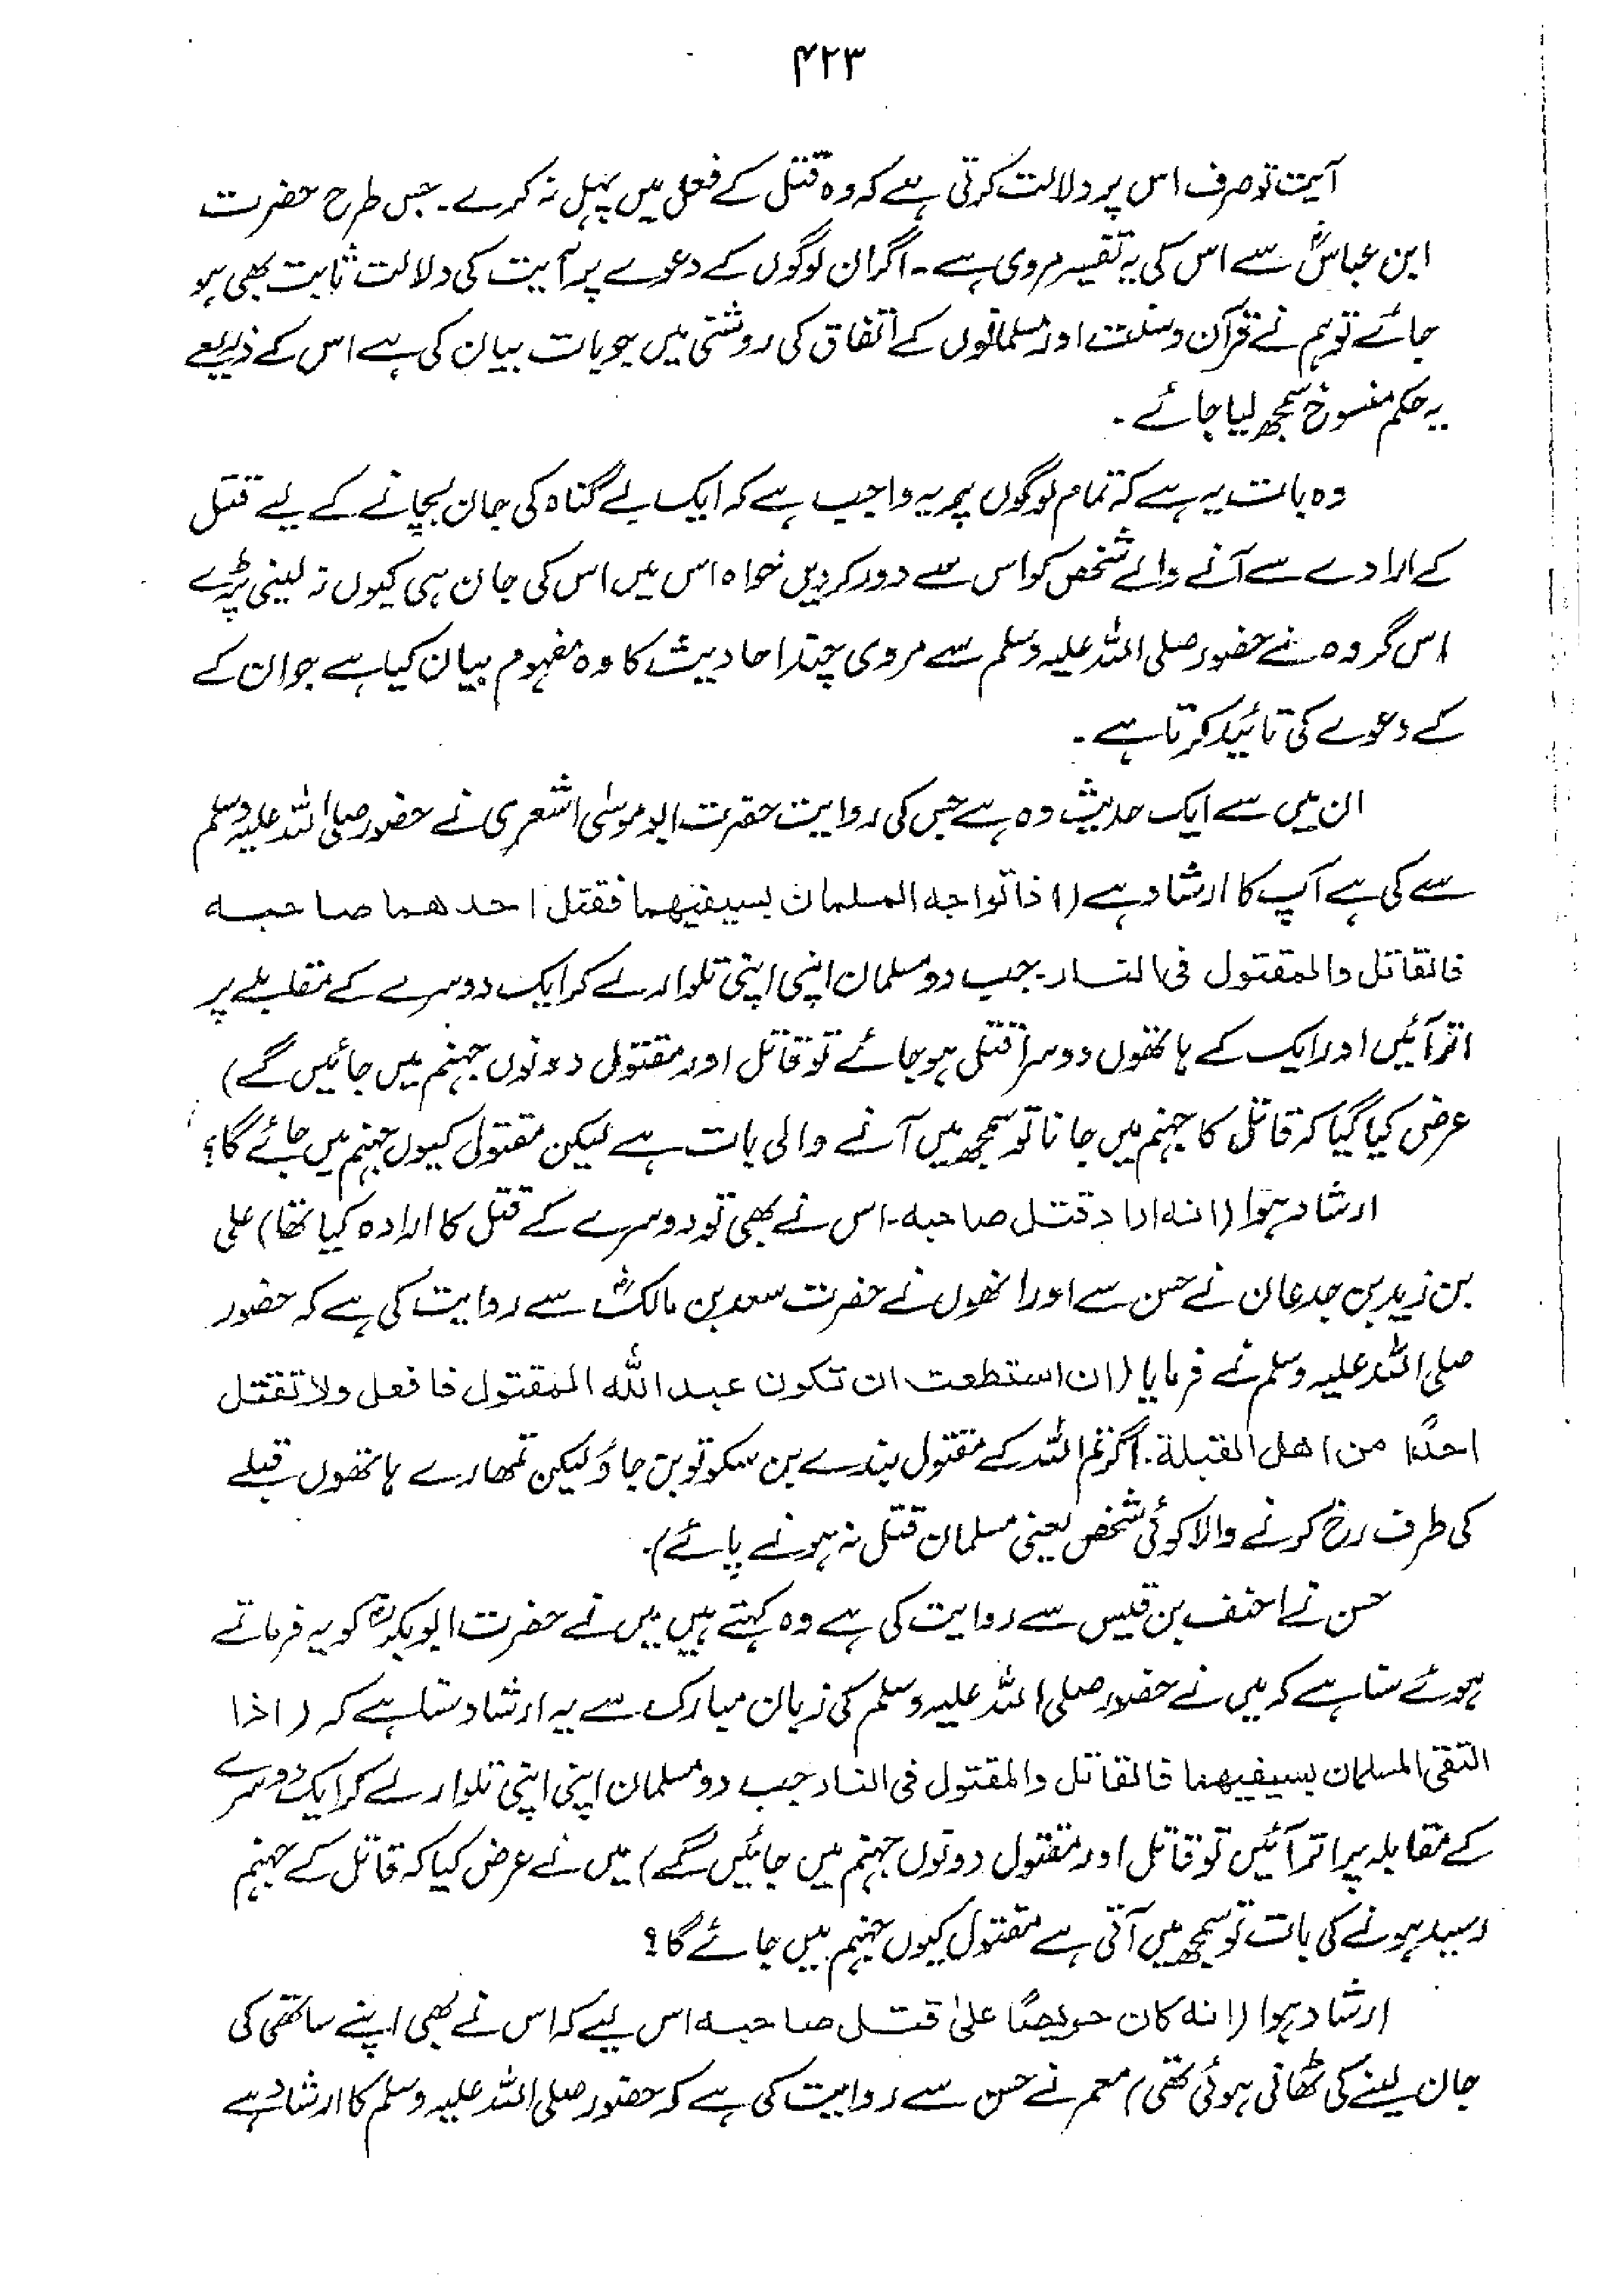 ۴۲۳
آیت تو صرف اس پر دلالت کرتی ہے کہ وہ قتل کے فعل میں پہل نہ کرے۔ جس طرح حضرت
ابن عباسؓ سے اس کی یہ تفسیر مروی ہے۔ اگر ان لوگوں کے دعوے پر آیت کی دلالت ثابت بھی ہو
جائے تو ہم نے قرآن و سنت اور مسلمانوں کے اتفاق کی روشنی میں جو بات بیان کی ہے اس کے ذریعے
یہ حکم منسوخ سمجھ لیا جائے۔
وہ بات یہ ہے کہ تمام لوگوں پر یہ واجب ہے کہ ایک بے گناہ کی جان بچانے کے لیے قتل
کے ارادے سے آنے والے شخص کو اس سے دور کردیں خواہ اس میں اس کی جان ہی کیوں نہ لینی پڑے
اس گروہ نے حضور صلی اللہ علیہ وسلم سے مروی چند احادیث کا وہ مفہوم بیان کیا ہے جو ان کے
کے دعوے کی تائید کرتا ہے۔
ان میں سے ایک حدیث وہ ہے جس کی روایت حضرت ابو موسٰی اشعری نے حضور صلی اللہ علیہ وسلم
سے کی ہے آپ کا ارشاد ہے (اذا تواجہ المسلمان بسیفیہما فقتل احدھما صاحبہ
فالقاتل والمقتول فی النار۔ جب دو مسلمان اپنی اپنی تلوار لے کر ایک دوسرے کے مقابلے پر
اتر آئیں اور ایک کے ہاتھوں دوسرا قتل ہو جائے تو قاتل اور مقتول دونوں جہنم میں جائیں گے)
عرض کیا گیا کہ قاتل کا جہنم میں جانا تو سمجھ میں آنے والی بات ہے لیکن مقتول کیوں جہنم میں جائے گا؟
ارشاد ہوا (انہ اراد قتل صاحبہ۔ اس نے بھی تو دوسرے کے قتل کا ارادہ کیا تھا) علی
بن زید بن جدعان نے حسن سے اور انھوں نے حضرت سعد بن مالکؓ سے روایت کی ہے کہ حضور
صلی اللہ علیہ وسلم نے فرمایا (ان استطعت ان تکون عبد اللہ المقتول فافعل ولا تقتل
احدًا من اھل القبلة۔ اگر تم اللہ کے مقتول بندے بن سکو تو بن جاؤ لیکن تمھارے ہاتھوں قبلے
کی طرف رخ کرنے والا کوئی شخص یعنی مسلمان قتل نہ ہونے پائے)۔
حسن نے احنف بن قیس سے روایت کی ہے وہ کہتے ہیں میں نے حضرت ابوبکرہؓ کو یہ فرماتے
ہوئے سنا ہے کہ میں نے حضور صلی اللہ علیہ وسلم کی زبان مبارک سے یہ ارشاد سنا ہے کہ (اذا
التقی المسلمان بسیفیھما فالقاتل والمقتول فی النار جب دو مسلمان اپنی اپنی تلوار لے کر ایک دوسرے
کے مقابلہ پر اتر آئیں تو قاتل اور مقتول دونوں جہنم میں جائیں گے) میں نے عرض کیا کہ قاتل کے جہنم
رسید ہونے کی بات تو سمجھ میں آتی ہے مقتول کیوں جہنم میں جائے گا؟
ارشاد ہوا (انہ کان حریصًا علیٰ قتل صاحبہ اس لیے کہ اس نے بھی اپنے ساتھی کی
جان لینے کی ٹھانی ہوئی تھی) معمر نے حسن سے روایت کی ہے کہ حضور صلی اللہ علیہ وسلم کا ارشاد ہے